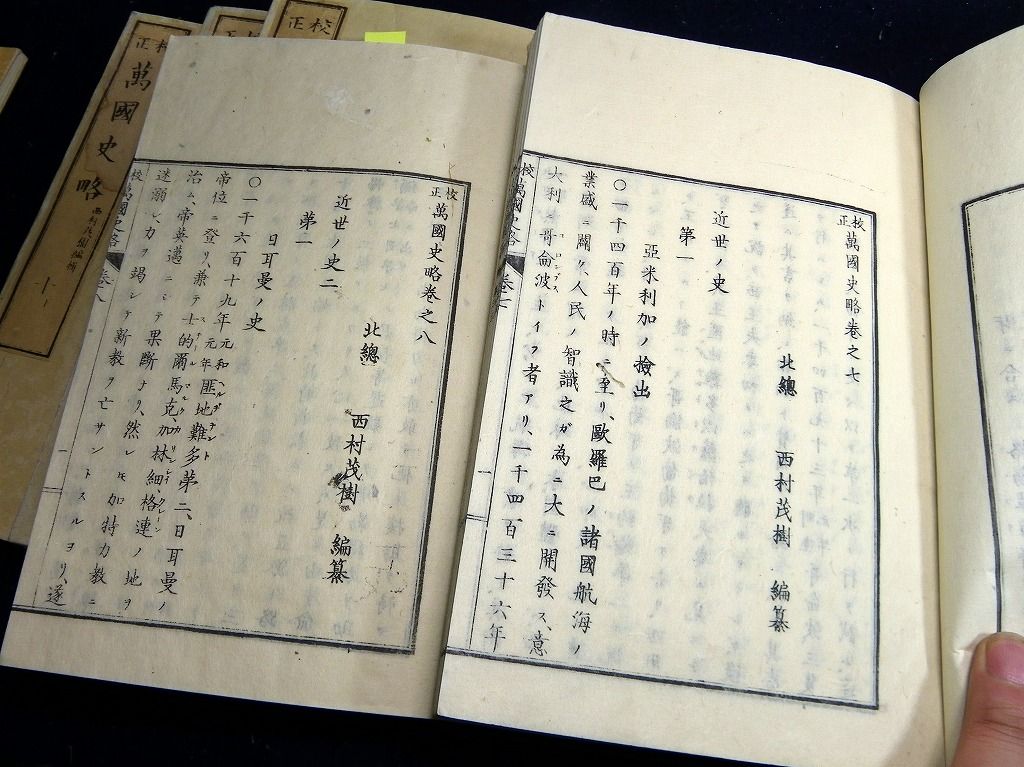 校正萬國史略卷之七
北總 西村茂樹 編纂
近世ノ史
第一
亞米利加ノ檢出
〇一千四百年ノ時ニ至リ、歐羅巴ノ諸國航海ノ
業盛ニ闢ケ、人民ノ智識之ガ為ニ大ニ開發ス、意
大利ニ哥侖波トイフ者アリ、一千四百三十六年
校正萬國史略 卷七 一
校正萬國史略卷之八
北總 西村茂樹 編纂
近世ノ史二
第一
日耳曼ノ史
〇一千六百十九年元和元年匪地難多第二、日耳曼ノ
帝位ニ登リ、兼テ士的爾馬克、加林細、格連ノ地ヲ
治ム、帝英邁ニシテ果斷ナリ、然レ𪜈加特力教ニ
迷溺シ、力ヲ竭シテ新教ヲ亡サントスルヨリ、遂
校正萬國史略 卷八 一
校正
校正
萬國史略
西村茂樹編輯